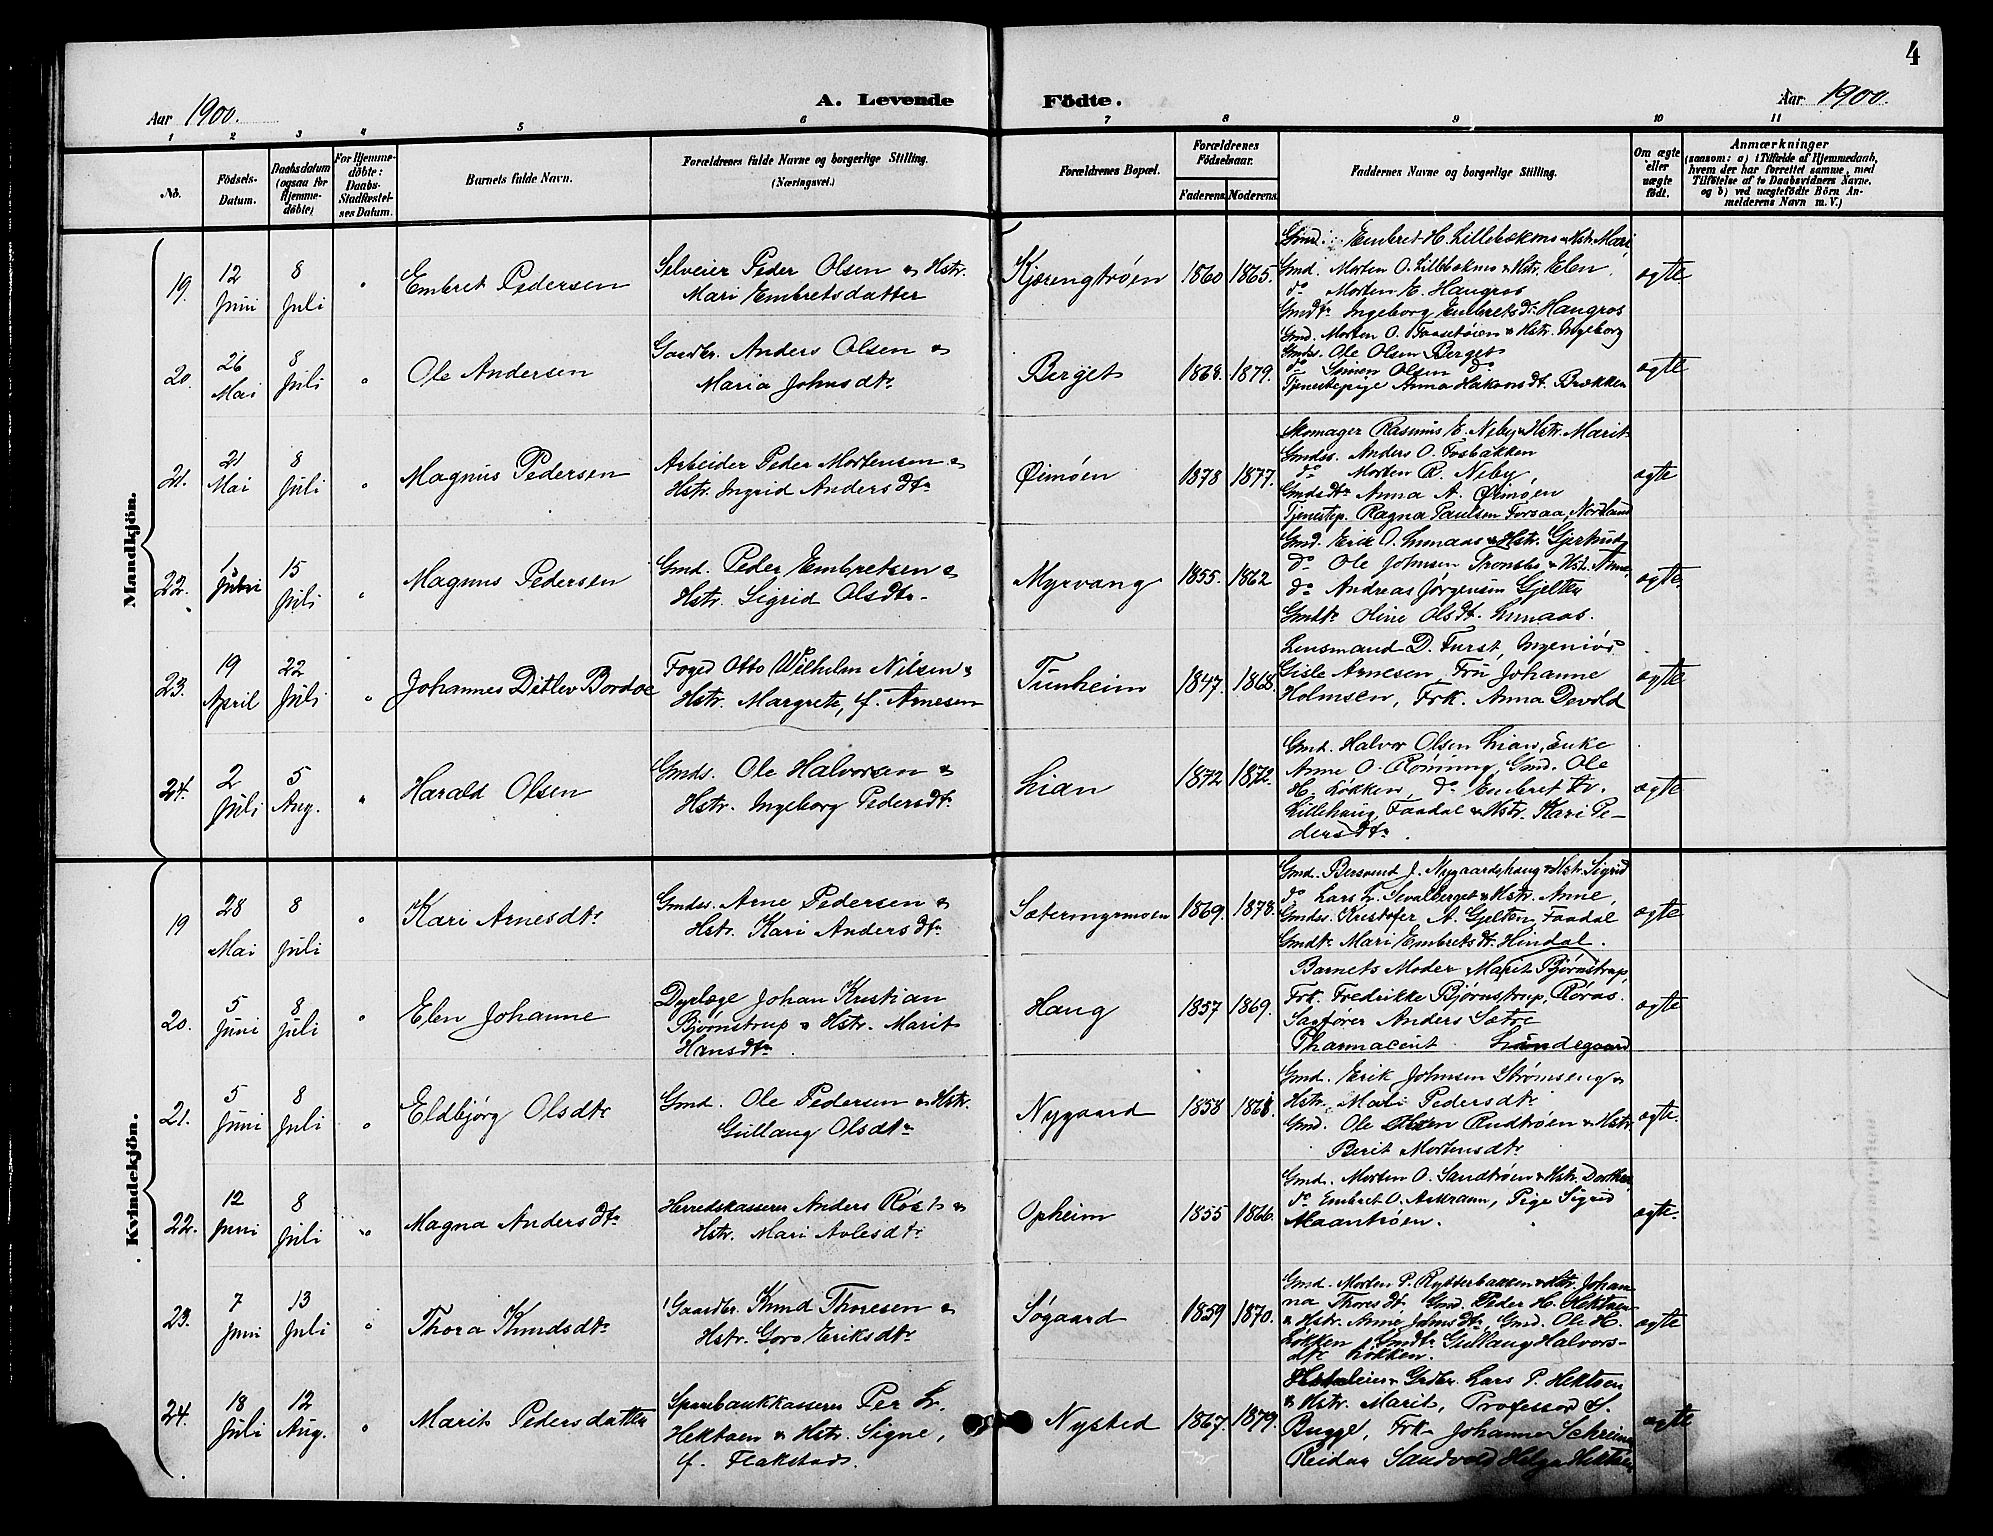 4
Aar 1900.
A. Levende Födte.
Aar 1900.
1 2 3 4 5 6 7 8 9 10 11
No.
Födsels-Datum.
Daabsdatum (ogsaa for Hjemmedöbte)
For Hjemmedöbte: Daabs-Stadfæstelses Datum.
Barnets fulde Navn.
Forældrenes fulde Navne og borgerlige Stilling.
(Næringsvei.)
Forældrenes Bopæl.
Forældrenes Födselsaar.
Faderens. Moderens.
Faddernes Navne og borgerlige Stilling.
Om ægte eller uægte födt.
Anmærkninger
(saasom: a) i Tilfælde af Hjemmedaab,
hvem der har forrettet samme, med
Tilföielse af to Daabsvidners Navne,
og b) ved uægtefödte Börn Anmelderens Navn m. V.)
Mandkjön.
19. 12 Juni 8 Juli " Embret Pedersen
Selveier Peder Olsen & Hstr.
Mari Embretsdatter
Kjærengtrøen 1860 1865.
Gmd. Embret H. Lillebækmo & Hstr. Mari
Gmd. Morten O. Lillebækmo & Hstr. Elen.
do Morten E. Haugros
Gmdtr. Ingeborg Embretsdtr. Haugros
ægte
20. 26 Mai 8 Juli " Ole Andersen
Gaardbr. Anders Olsen &
Maria Johnsdtr.
Berget 1868. 1879.
Gmd. Morten O. Faasetøien & Hstr. Ingeborg
Gmds. Ole Olsen Berget
do Simen Olsen do
Tjenestepige Anna Hakonsdt. Brækken
ægte
21. 21 Mai 8 Juli " Magnus Pedersen
Arbeider Peder Mortensen &
Hstr. Ingrid Andersdtr.
Øimoen 1878 1877.
Skomager Rasmus E. Neby & Hstr. Marit
Gmdss. Anders O. Fosbakken
do Morten R. Neby
Gmdsdtr Anna A. Øimoen
Tjenestep. Ragna Paulsen Forsaa, Nordland
ægte
22. Juni 15 Juli " Magnus Pedersen
Gmd. Peder Embretsen &
Hstr. Sigrid Olsdtr.
Myrvang 1855. 1862
Gmd. Erik O. Lunaas & Hstr. Gjertrud
do Ole Johnsen Tronsbo & Hst. Anne,
do Andreas Jørgensen Gjelten
Gmdtr Oline Olsdt. Lunaas.
ægte
23. 19 April 22 Juli " Johannes Ditlev Bordoe
Foged Otto Wilhelm Nilsen &
Hstr. Margrete, f. Arnesen
Tunheim 1847. 1868.
Lensmand D. Furst, Ingeniør
Gisle Arnesen, Fru Johanne
Holmsen, Frk. Anna Devold
ægte
24. 2 Juli 5 Aug. " Harald Olsen
Gmds. Ole Halvorsen &
Hstr. Ingeborg Pedersdtr.
Lian 1872 1872.
Gmd. Halvor Olsen Lian, Enke
Anne O. Rønning, Gmd. Ole
H. Løkken, do Embret
Lillehaug Faadal & Hstr. Kari Pe-
dersdtr.
ægte
Kvindekjön.
19 28 Mai 8 Juli " Kari Arnesdtr
Gmdss. Arne Pedersen &
Hstr. Kari Andersdtr.
Sætermyrmoen 1869. 1878.
Gmd. Bersvend J. Nygaardshaug & Hstr. Sigrid
do Lars L. Sevalberget & Hstr. Anne,
Gmdss. Kristofer A. Gjelten, Faadal
Gmdtr Mari Embretsdt. Hindal.
ægte
20. 5 Juni 8 Juli " Elen Johanne
Dyrlæge Johan Kristian
Bjørnstrup & Hstr. Marit
Hansdtr.
Haug 1857 1869.
Barnets Moder Marit Bjørnstrup,
Frk. Fredrikke Bjørnstrup, Røros.
Sagfører Anders Sætre
Pharmaceut Lundegaard
ægte
21. 5 Juni 8 Juli " Eldbjørg Olsdtr
Gmd. Ole Pedersen & Hstr.
Gullaug Olsdtr
Nygaard 1858
Gmd. Erik Johnsen Strømseng &
Hstr. Mari Pedersdtr
Gmd. Ole Rudtrøen & Hstr.
Berit Mortensdtr
ægte.
22. 12 Juni 8 Juli " Magna Andersdtr.
Herredskasserer Anders Røst &
Hstr. Mari Avlesdtr
Opheim 1855 1866.
Gmd. Morten O. Sandtrøen & Hstr. Dorthea,
do Embret O. Aukraan, Pige Sigrid
Maantrøen.
ægte.
23. 7 Juni 13 Juli " Thora Knudsdtr
Gaardbr. Knud Thoresen &
Hstr. Goro Eriksdtr
Søgaard 1859 1870.
Gmd. Morten P. Rytterbakken & Hstr. Johan-
na Thoresdt. Gmd. Peder H. Hektoen
& Hstr. Anne Johnsdtr, Gmd. Ole H.
Løkken, Gmdtr Gullaug Halvors-
dtr Løkken.
ægte
24. 18 Juli 12 Aug. " Marit Pedersdatter
Sparebankkasserer Per L.
Hektoen & Hstr. Signe,
f. Flakstad.
Nysted 1867. 1879.
Grdbr. Lars P. Hektoen
& Hstr. Marit, Professor S.
Bugge, Frk. Johanne Schreiner
Reidar Sandvold Helga Hektoen
ægte